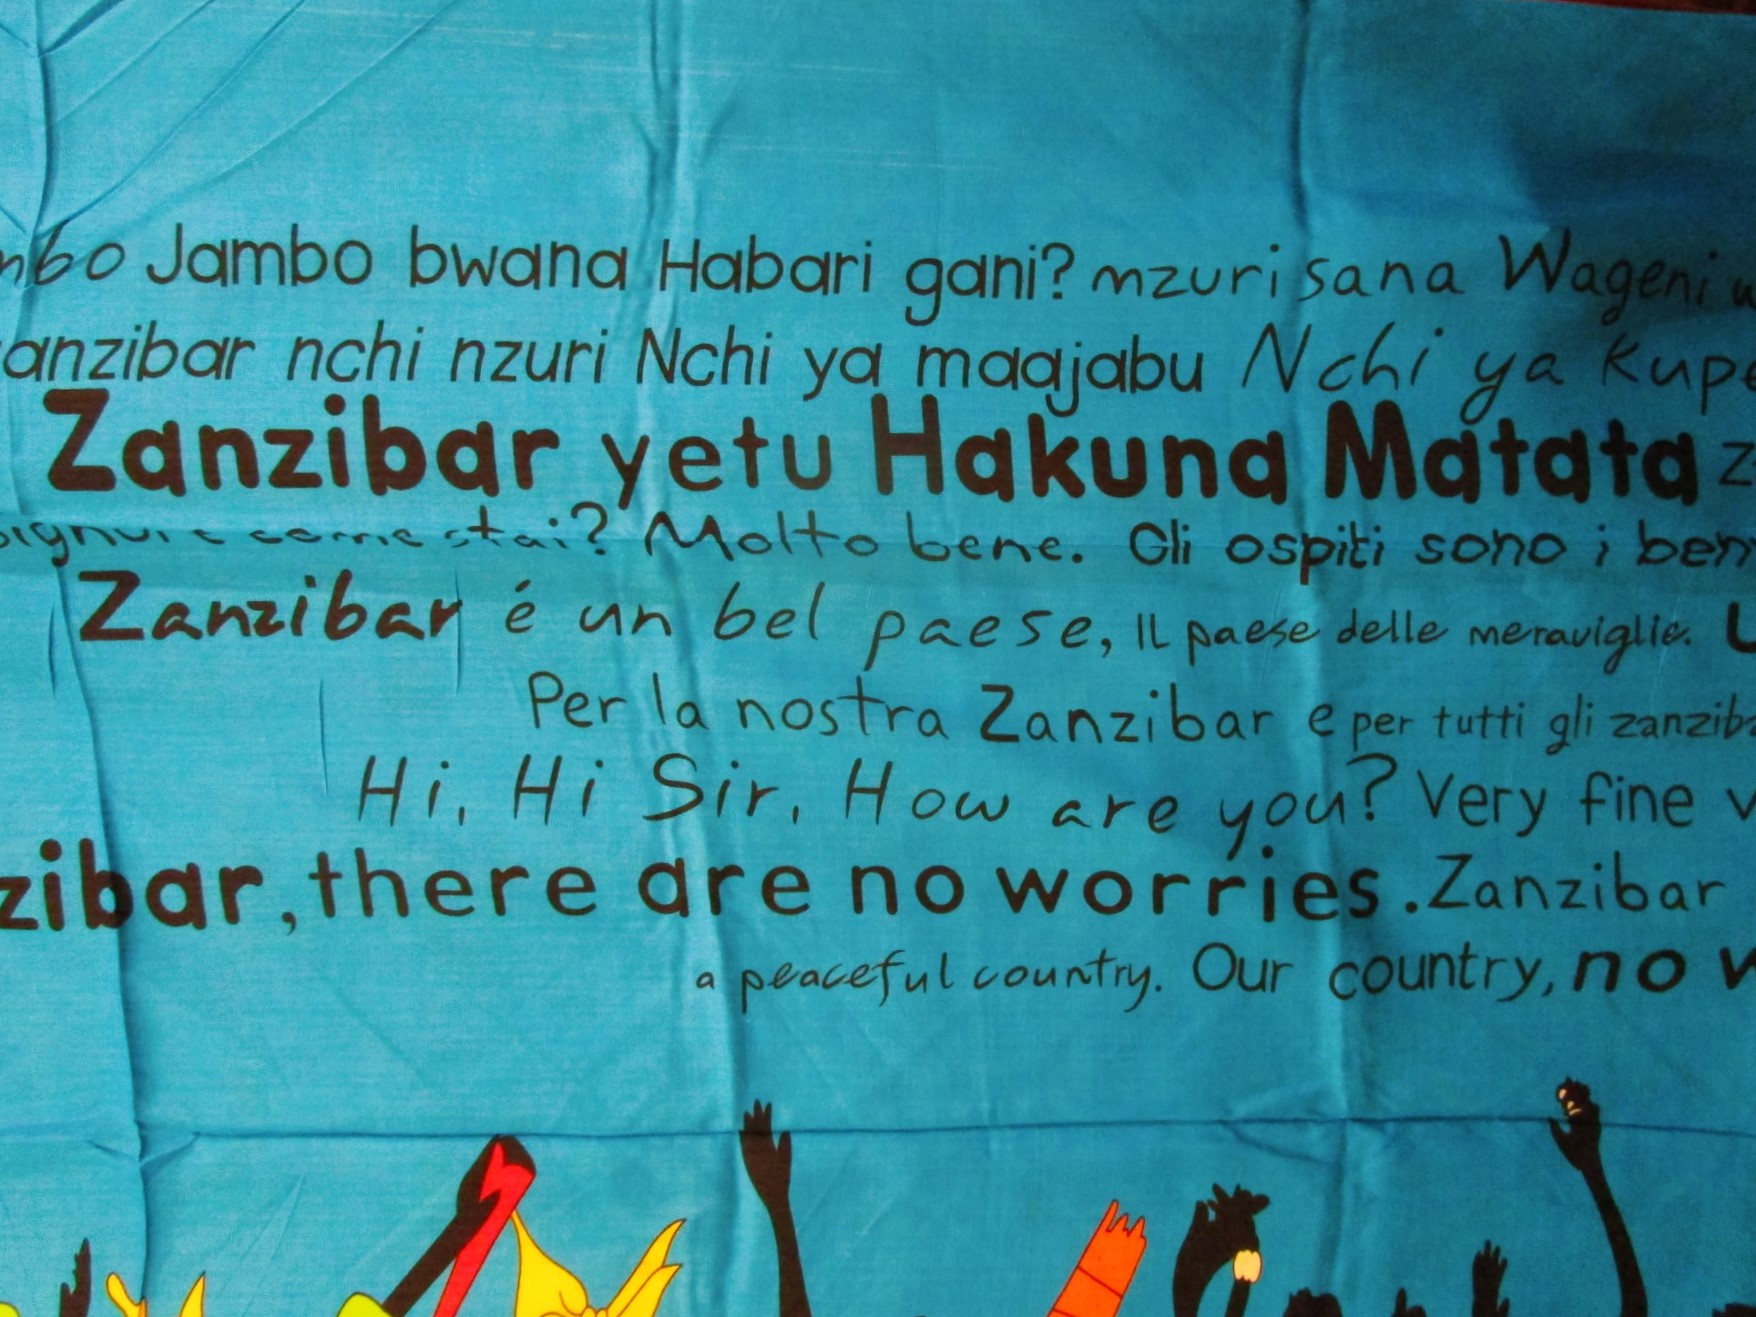 Jambo bwana Habari gani? mzuri sana Wageni
anzibar nchi nzuri Nchi ya maajabu Nchi ya Kupe
Zanzibar yetu Hakuna Matata Z
come stai? Molto bene. Gli ospiti sono i ben
Zanzibar é un bel paese, IL paese delle meraviglie. U
Per la nostra Zanzibar e per tutti gli zanziba
Hi, Hi Sir, How are you? Very fine v
zibar, there are no worries. Zanzibar
a peaceful country. Our country, no w